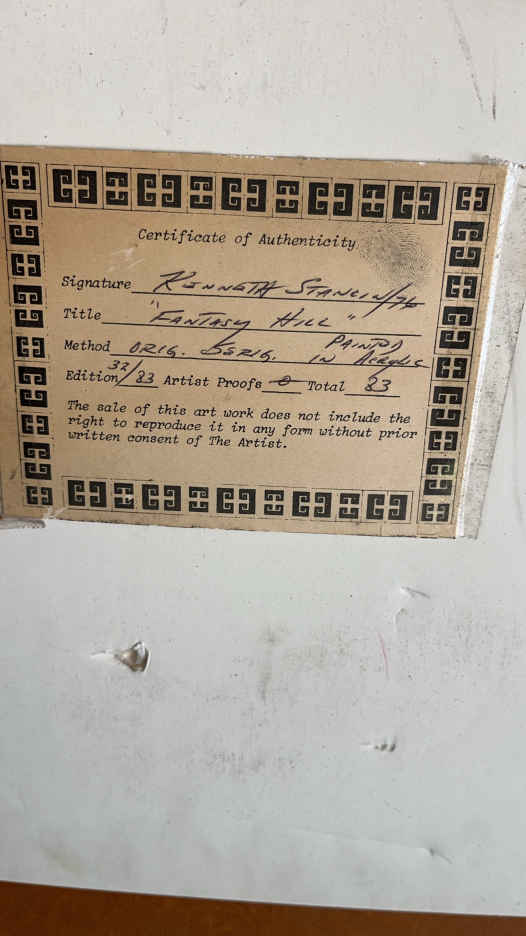 Certificate of Authenticity
Signature Kenneth Stanlin/76
Title "Fantasy Hill"
Method Orig. Serig. Painted in Acrylic
Edition 32/83 Artist Proofs 0 Total 83
The sale of this art work does not include the
right to reproduce it in any form without prior
written consent of The Artist.